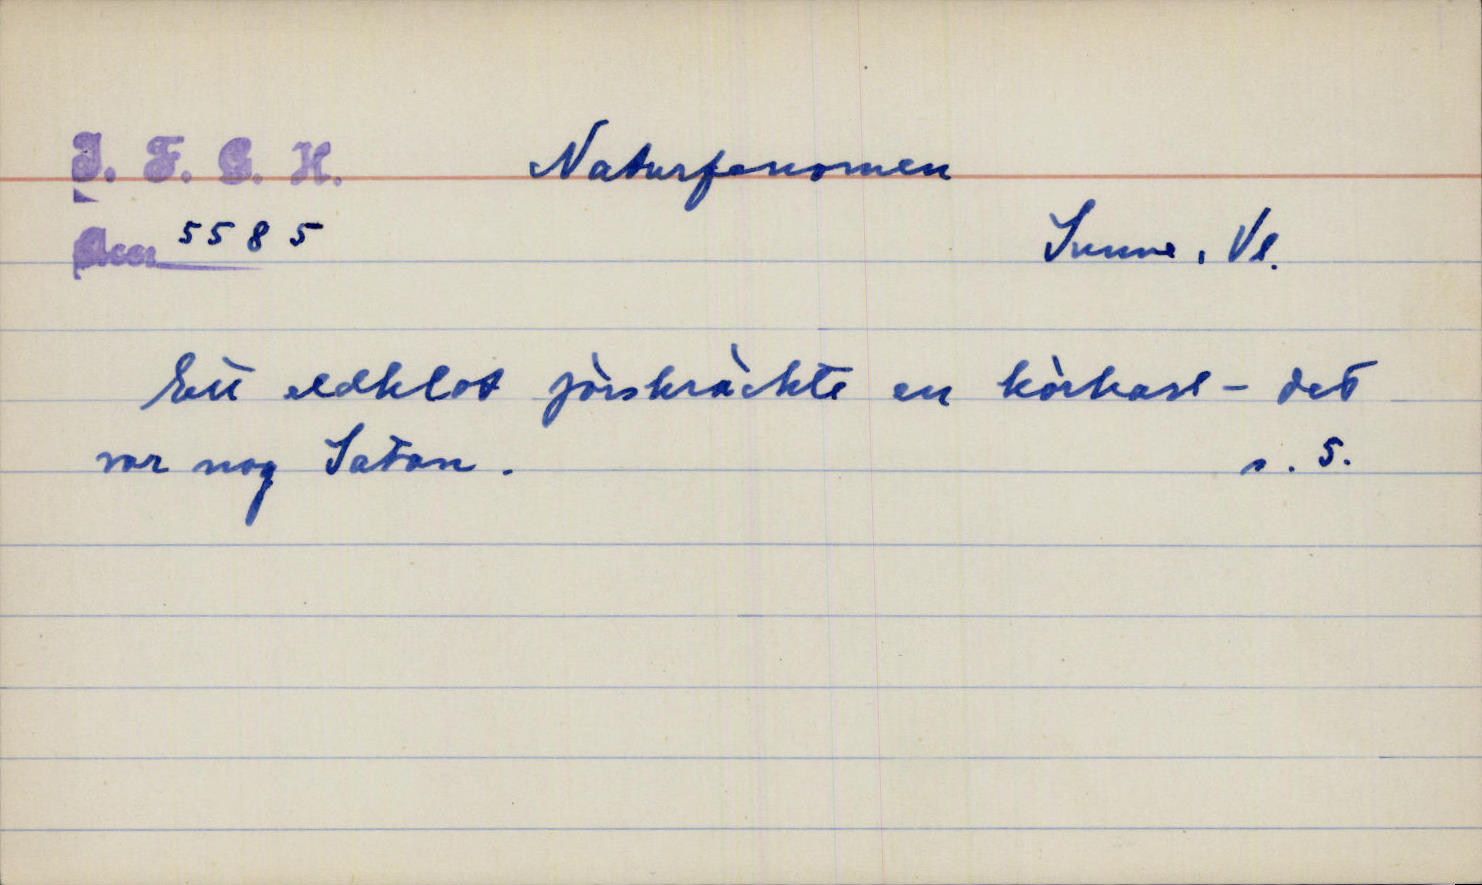 I. F. G. H. Naturfenomen
Acc. 5585 Sunne, Vl.
Ett eldklot förskräckte en körkarl - det
var nog Satan. s. 5.